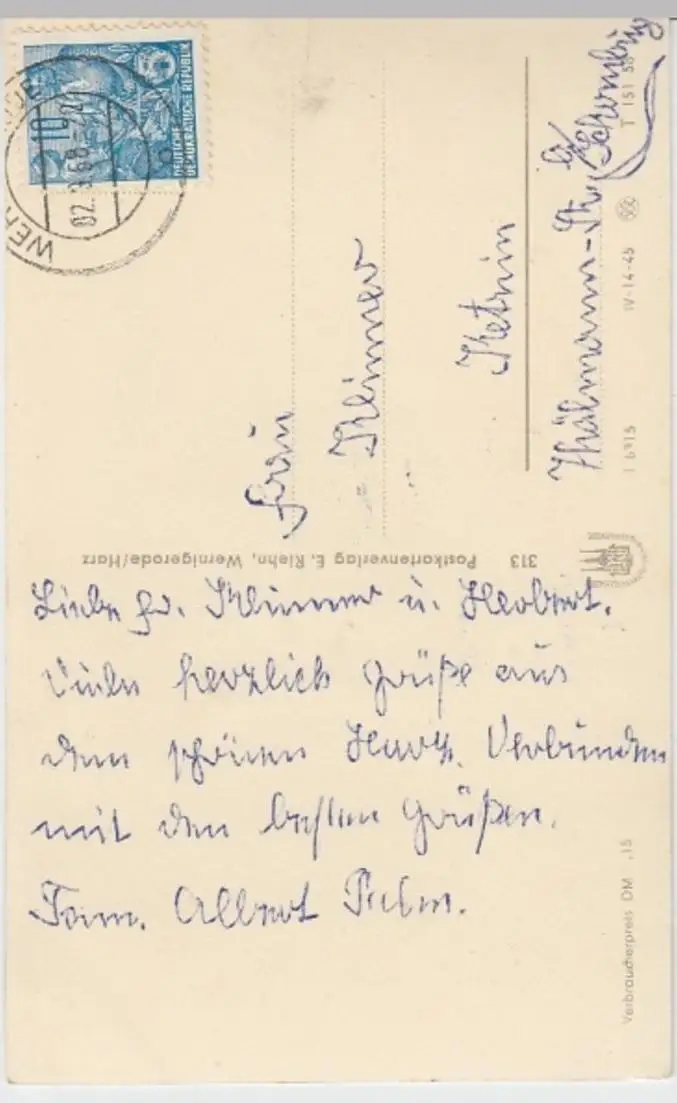 10
5
DEUTSCHE
DEMOKRATISCHE REPUBLIK
WER
Frau
Klimmer
Ketzin
Thälmann-Str.
b/ Schomburg
T 151 58
IV-14-45
313 Postkartenverlag E. Riehn, Wernigerode/Harz
Liebe Fr. Klimmer u. Herbert.
Viele herzlich Grüße aus
dem schönen Harz. Verbunden
mit den besten Grüßen.
Fam. Albert Palm.
Verbraucherpreis DM ,15